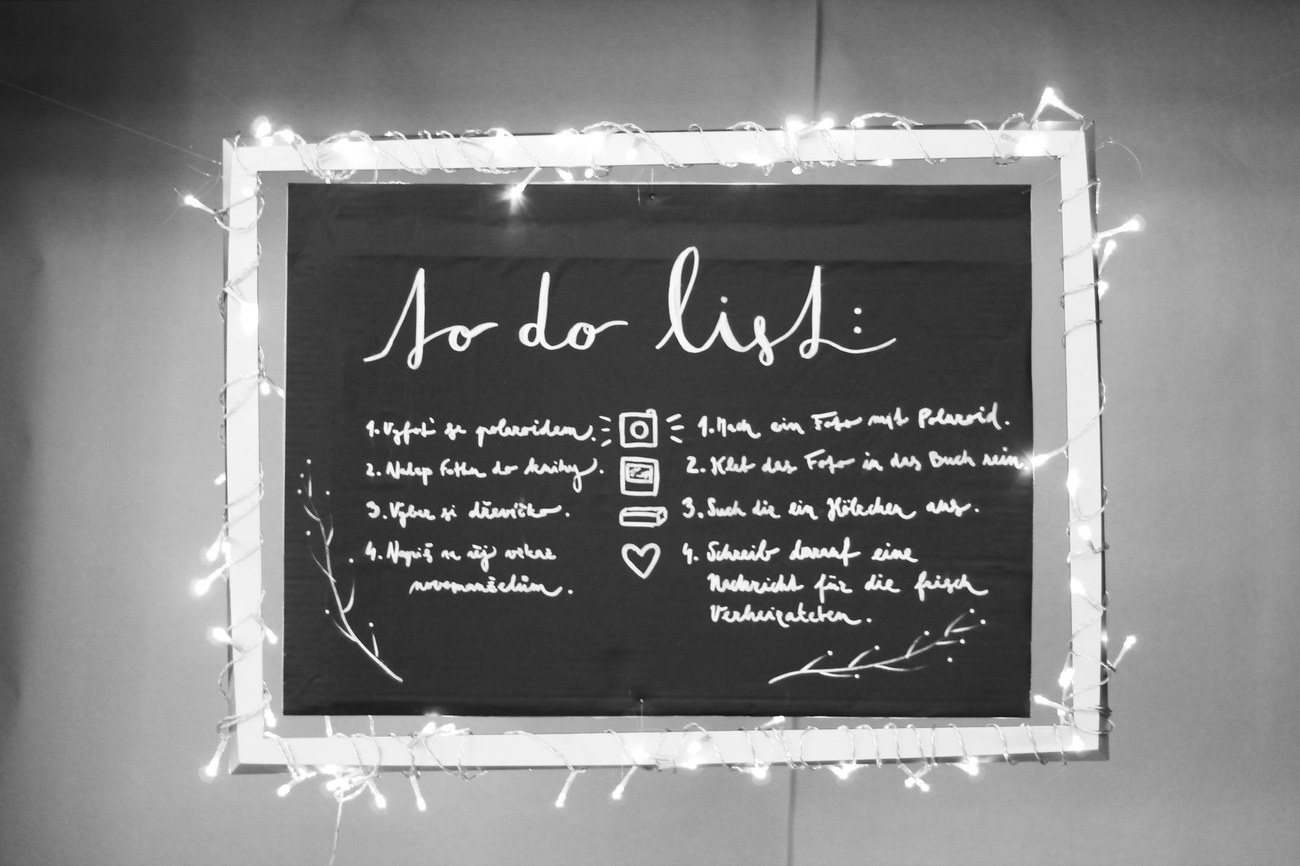 to do list:
1. Vyfoť se polaroidem.
2. Nalep fotku do knihy.
3. Vyber si dřevíčko.
4. Napiš na něj vzkaz
novomanželům.
1. Mach ein Foto mit Polaroid.
2. Kleb das Foto in das Buch rein.
3. Such dir ein Hölzchen aus.
4. Schreib darauf eine
Nachricht für die frisch
Verheirateten.